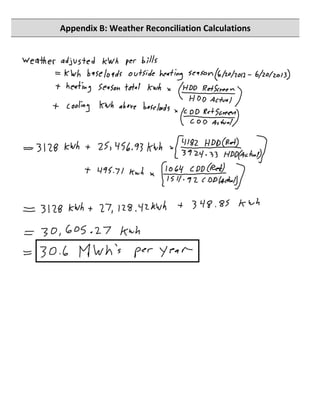 Appendix B: Weather Reconciliation Calculations
Weather adjusted kWh per bills
= kWh baseloads outside heating season (6/20/2012 - 6/20/2013)
+ heating season total kWh × (HDD RetScreen / HDD Actual)
+ cooling kWh above baseloads × (CDD RetScreen / CDD Actual)
= 3128 kWh + 25,456.93 kWh × [4182 HDD (Ret) / 3924.33 HDD (Actual)]
+ 495.71 kWh × [1064 CDD (Ret) / 1511.92 CDD (Actual)]
= 3128 kWh + 27,128.42 kWh + 348.85 kWh
= 30,605.27 kWh
= 30.6 MWh's per year